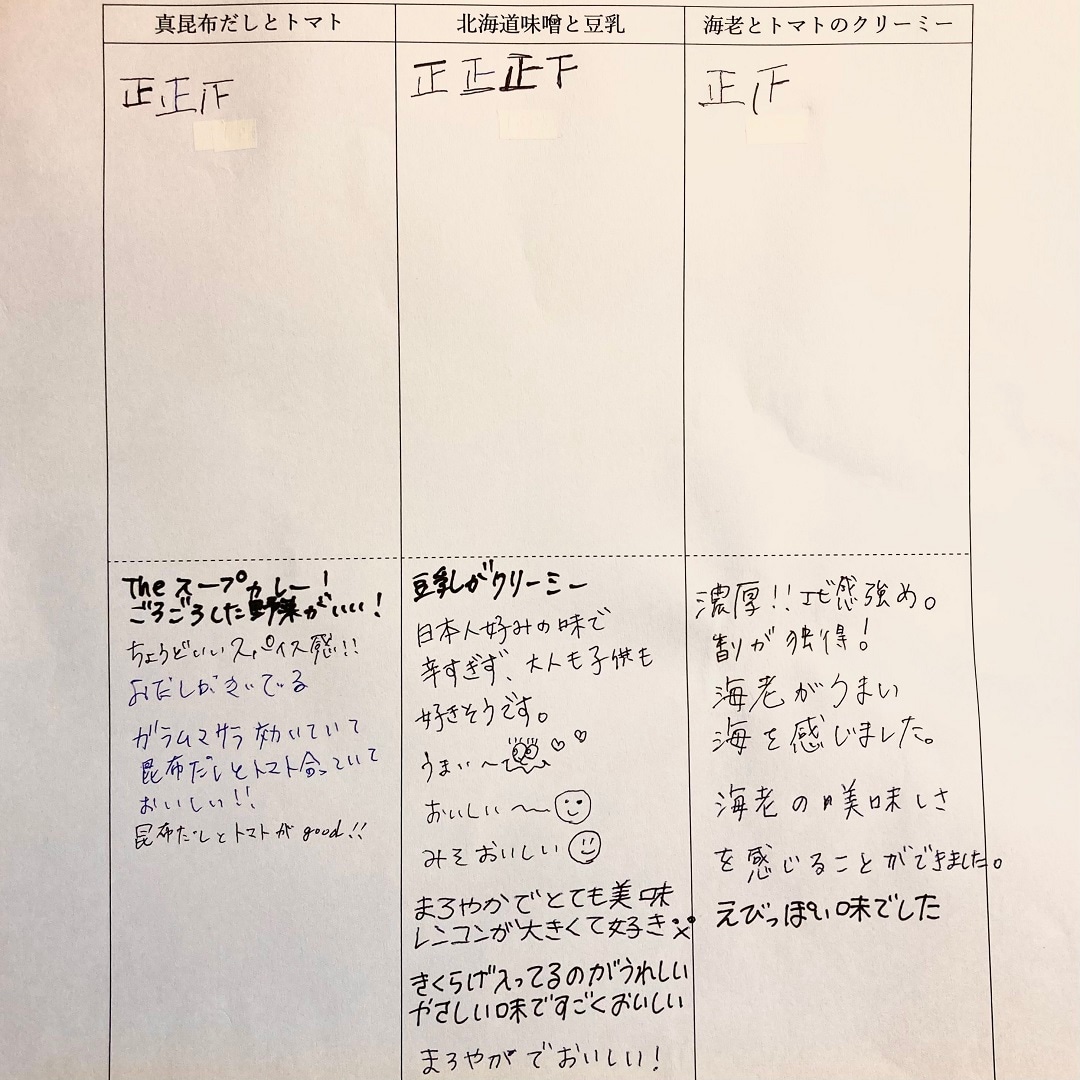 真昆布だしとトマト
正正下
Theスープカレー!
ごろごろした野菜がいい!
ちょうどいいスパイス感!!
おだしがきいてる
ガラムマサラ効いていて
昆布だしとトマト合っていて
おいしい!!
昆布だしとトマトがgood!!
北海道味噌と豆乳
正正正下
豆乳がクリーミー
日本人好みの味で
辛すぎず、大人も子供も
好きそうです。
うまい〜
おいしい〜
みそおいしい
まろやかでとても美味
レンコンが大きくて好き
きくらげ入ってるのがうれしい
やさしい味ですごくおいしい
まろやかでおいしい!
海老とトマトのクリーミー
正下
濃厚!!エビ感強め。
香りが独得!
海老がうまい
海を感じました。
海老の美味しさ
を感じることができました。
えびっぽい味でした